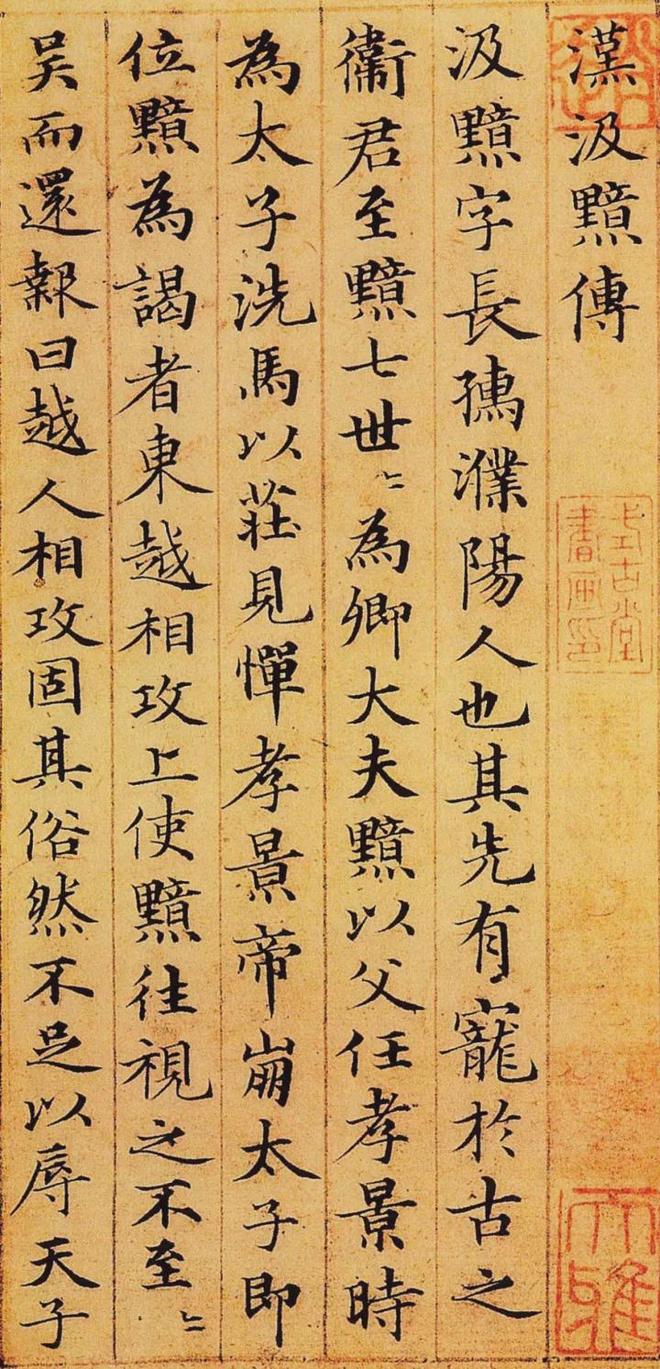 漢汲黯傳
汲黯字長孺濮陽人也其先有寵於古之
衛君至黯七世〻為卿大夫黯以父任孝景時
為太子洗馬以莊見憚孝景帝崩太子即
位黯為謁者東越相攻上使黯往視之不至〻
吳而還報曰越人相攻固其俗然不足以辱天子
式古堂
書画印
大雅